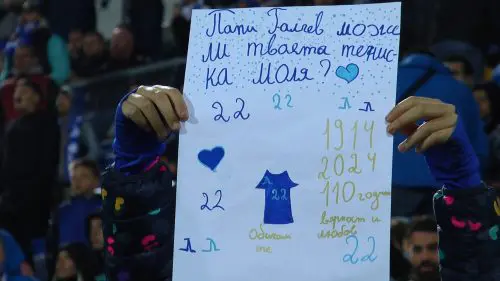 Пати Галчев може
ли твоята тенис-
ка моля?
22 22 Л Л
1914
2024
110 години
вярност и
любов
22
22
22
Обичам
те
Л Л